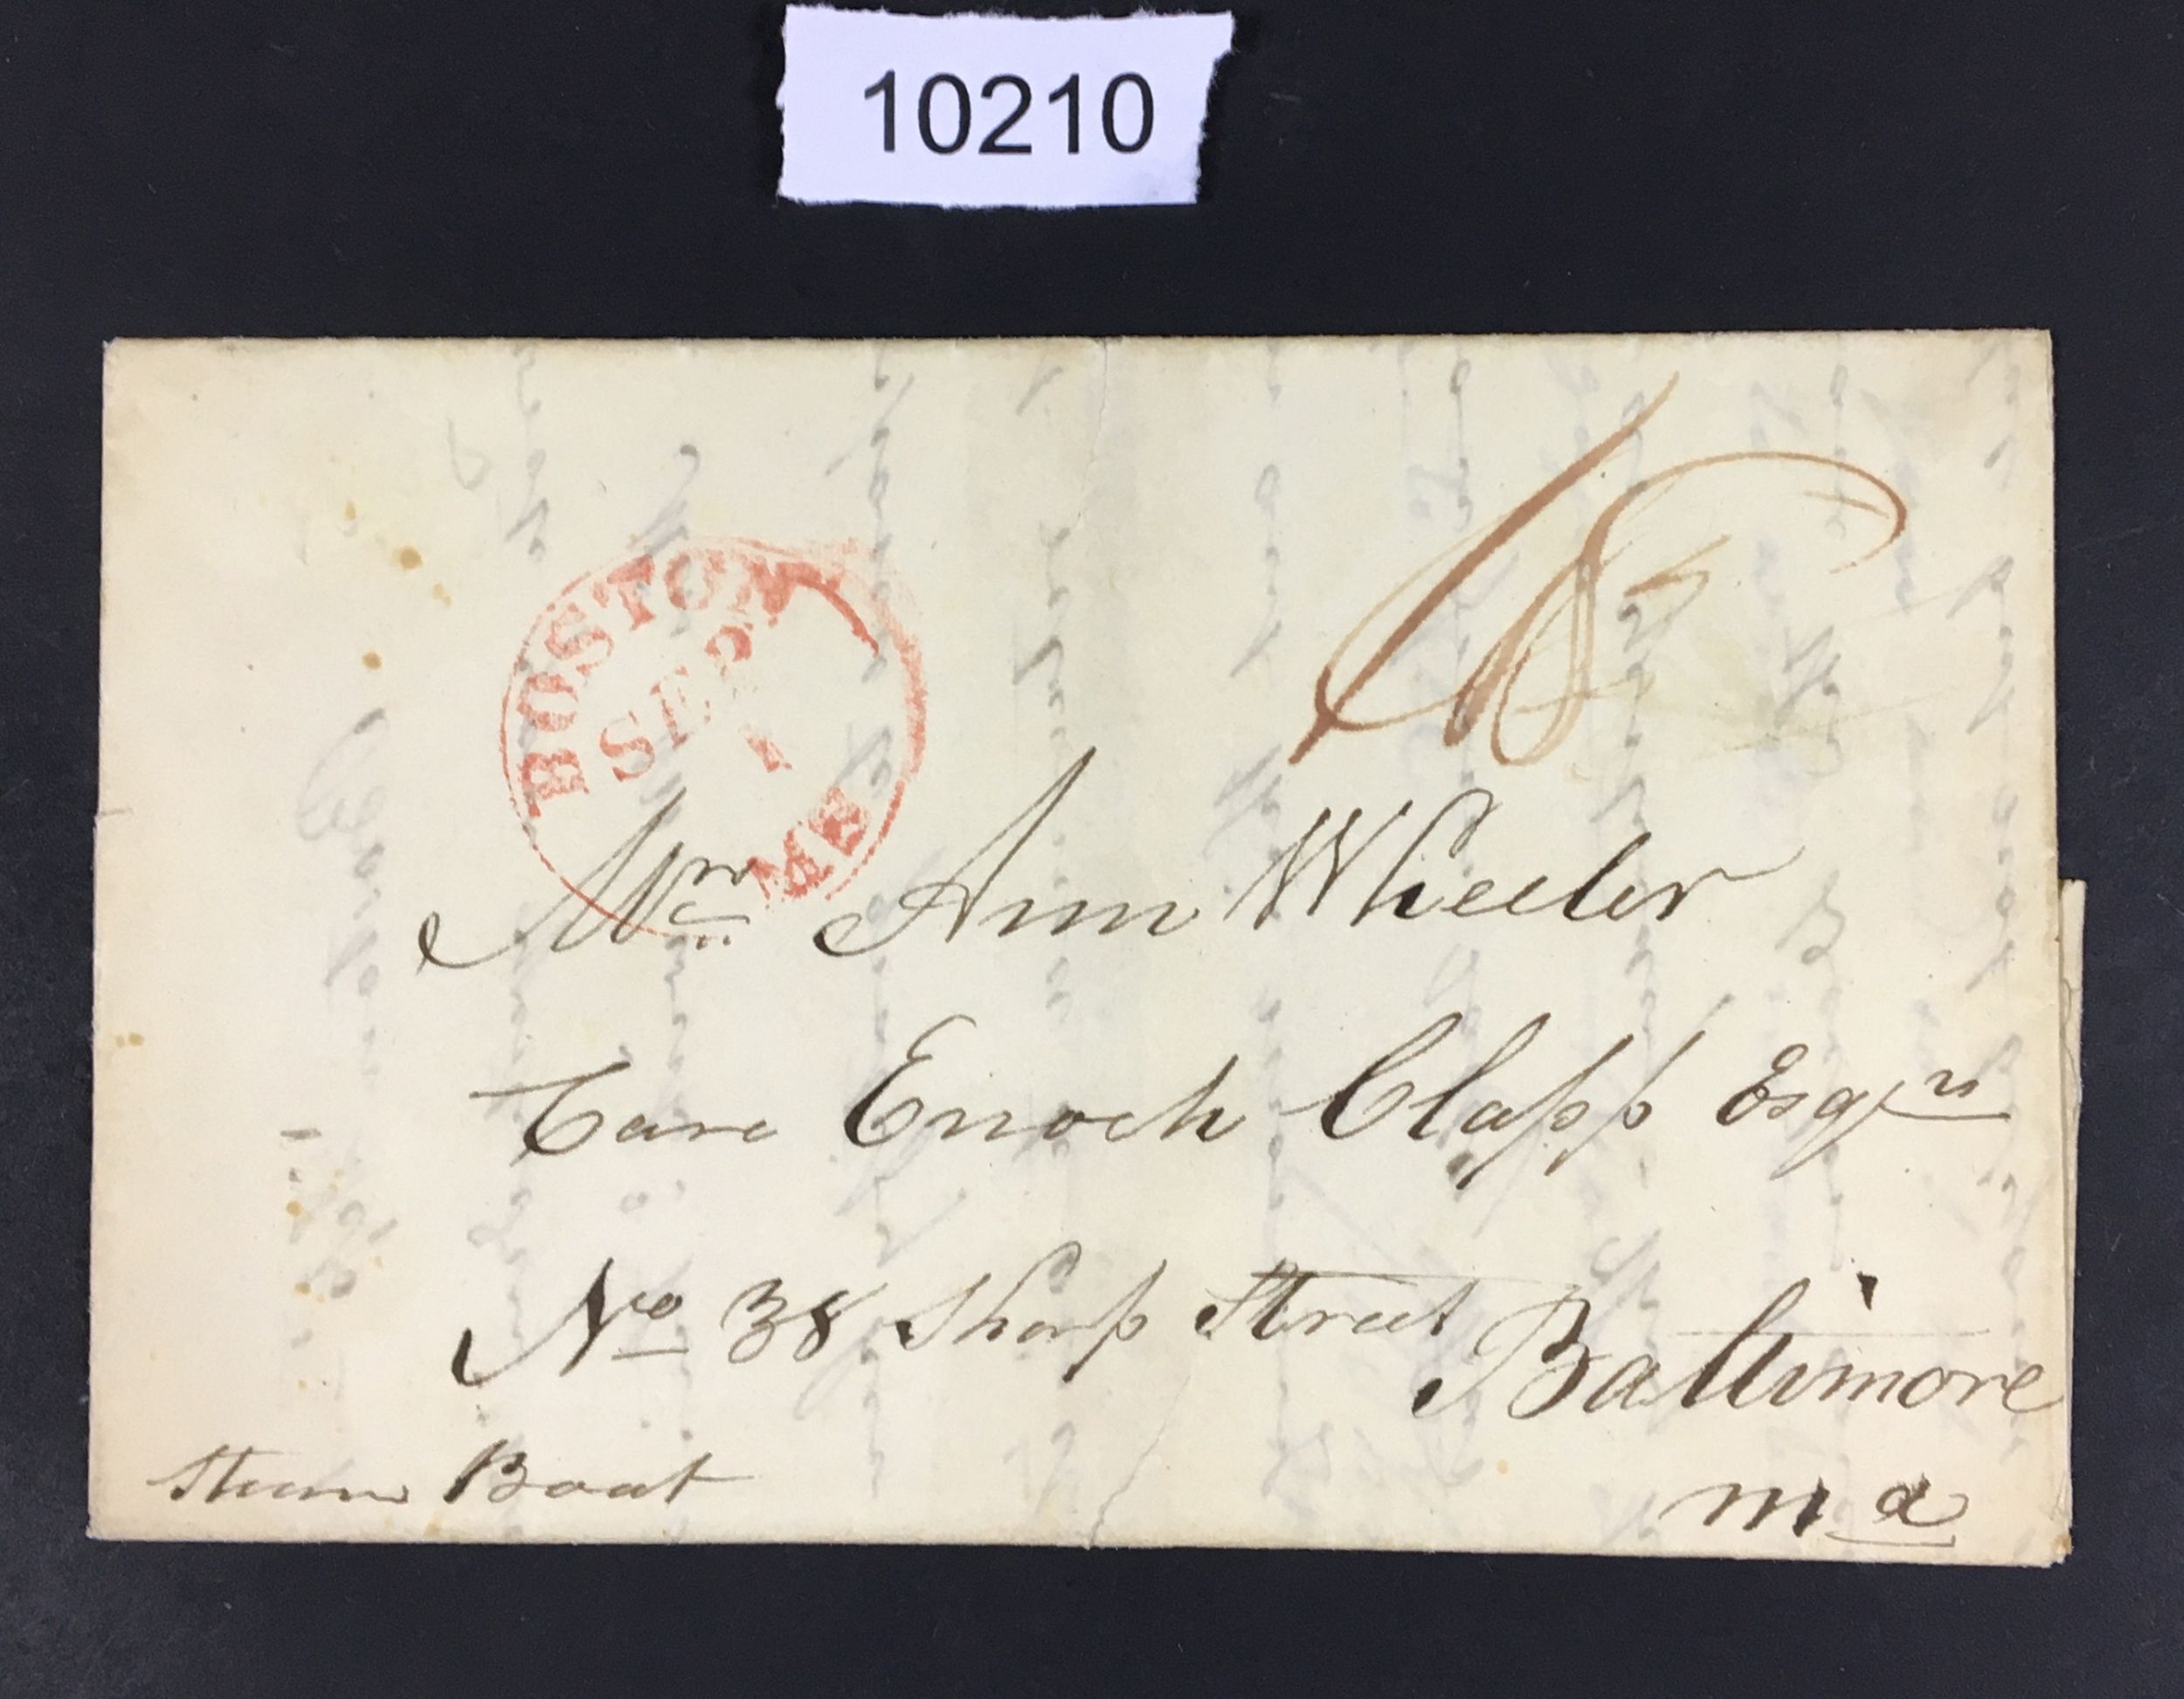 10210
BOSTON
SEP
1
MS
Mrs Ann Wheeler
Care Enoch Clapp Esqr
No 38 Sharp Street
Baltimore
Steam Boat
Md